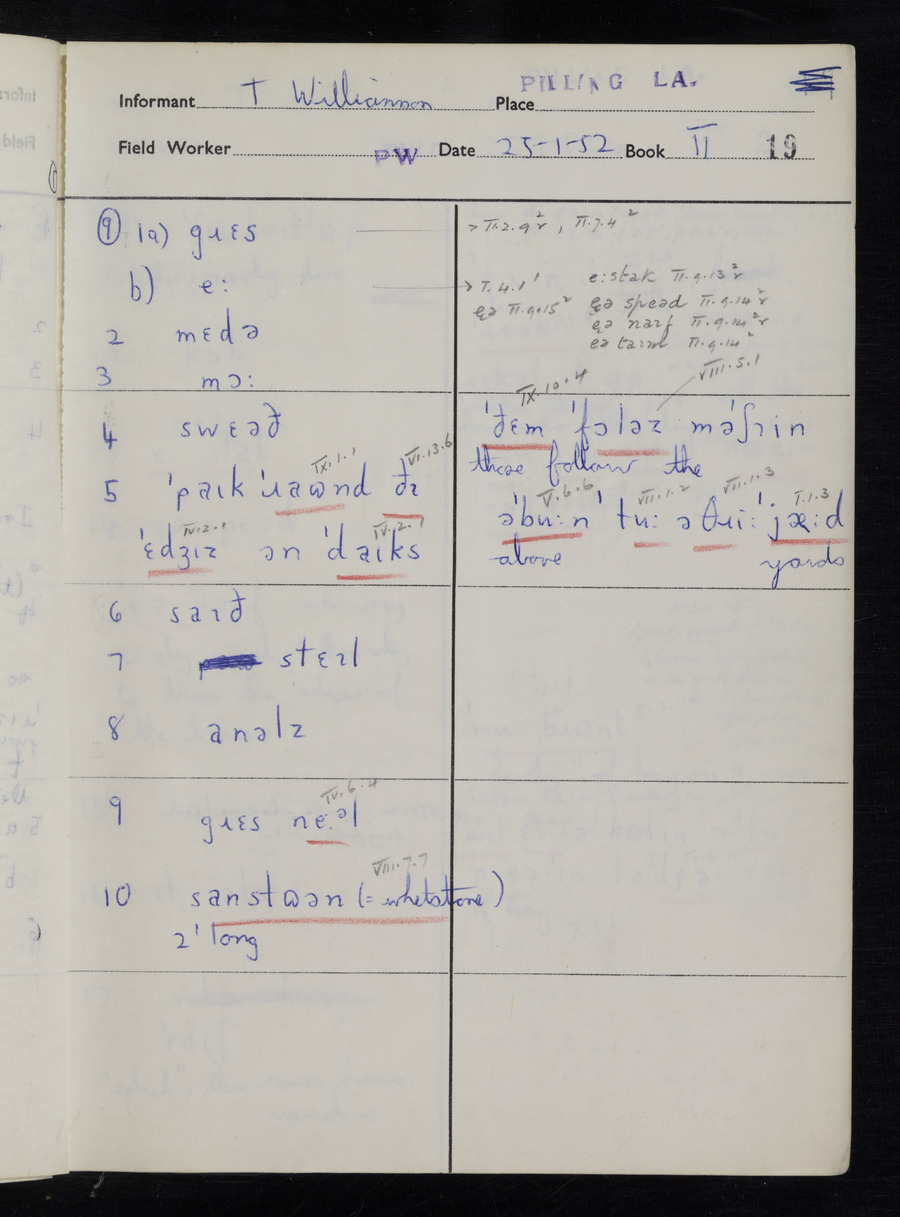 Informant T Williamson Place PILLING LA.
Field Worker PW Date 25-1-52 Book II 19
⑨ 1a) gɹɛs
> II.2.9²r, II.7.4²
b) e:
> I.4.1' e:stak II.9.13²r
ɛə II.9.15² ɛə spead II.9.14²r
ɛə naɪf II.9.14²r
eə taɪm II.9.14²
2 mɛdə
3 mɔ:
4 swɛəð
IX.10.4 VIII.5.1
ˈðɛm ˈfɔləz məˈʃɪin
these follow the
5 ˈpaɪk ˈɹaʊnd ðɪ
IX.1.1 VI.13.6
ˈɛdʒɪz ən ˈdaɪks
IV.2.1 IV.2.1
V.6.6 VII.1.2 VII.1.3 I.1.3
əˈbu:n ˈtu: ə θɹi: ˈjæ:d
above yards
6 saɪð
7 stɛɪl
8 anəlz
9 gɹɛs ne:əl
IV.6.4
VIII.7.7
10 sanstʊən (= whetstone)
2' long